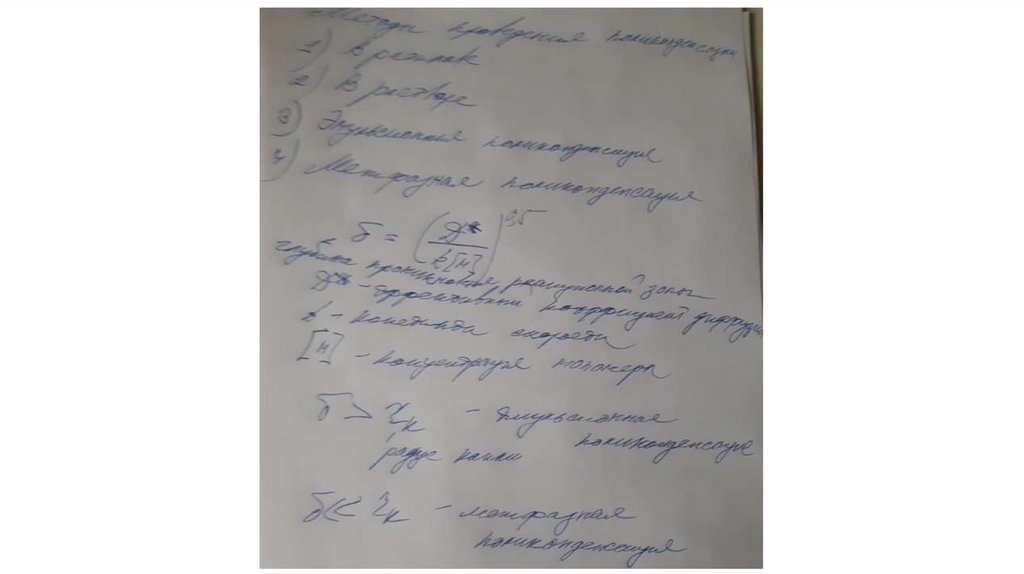 Методы проведения поликонденсации
1) В расплаве
2) В растворе
3) Эмульсионная поликонденсация
4) Межфазная поликонденсация
δ = (D* / k[м])^0,5
глубина проникновения реакционной зоны
D* - эффективный коэффициент диффузии
k - константа скорости
[м] - концентрация мономера
δ > r_к - эмульсионная
поликонденсация
радиус капли
δ << r_к - межфазная
поликонденсация